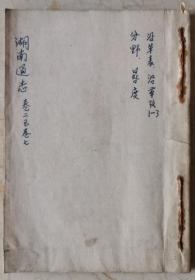 沿革表 沿革考1-3
分野 晷度
湖南通志 卷二至卷七